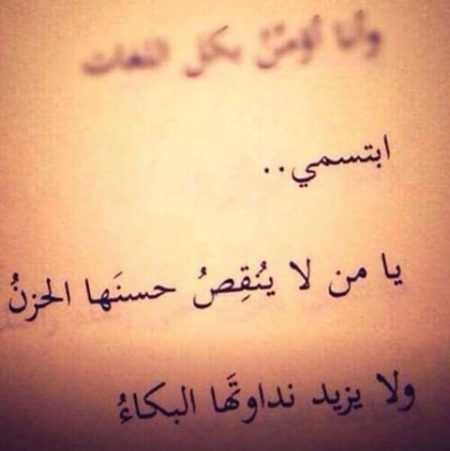 وأنا أؤمنُ بكل اللغات
ابتسمي..
يا من لا يُنقِصُ حسنَها الحزنُ
ولا يزيد نداوتَها البكاءُ